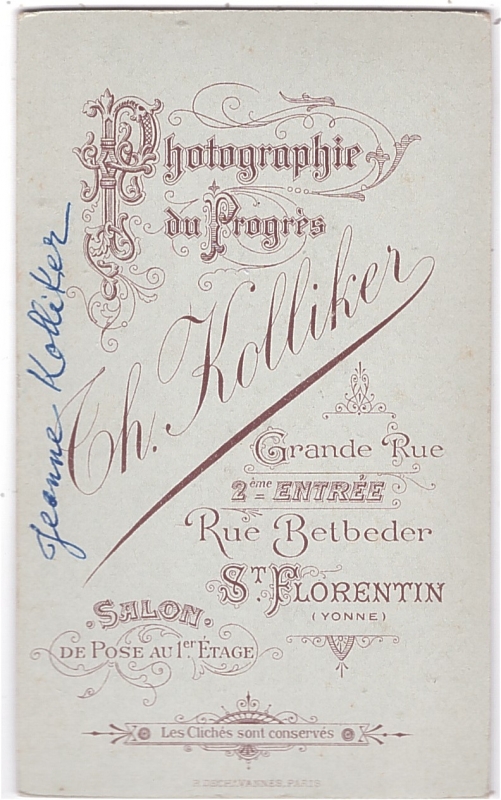 Photographie
du Progrès
Th. Kolliker
Jeanne Kolliker
Grande Rue
2ème ENTRÉE
Rue Betbeder
ST. FLORENTIN
(YONNE)
SALON
DE POSE AU 1er ÉTAGE
Les Clichés sont conservés